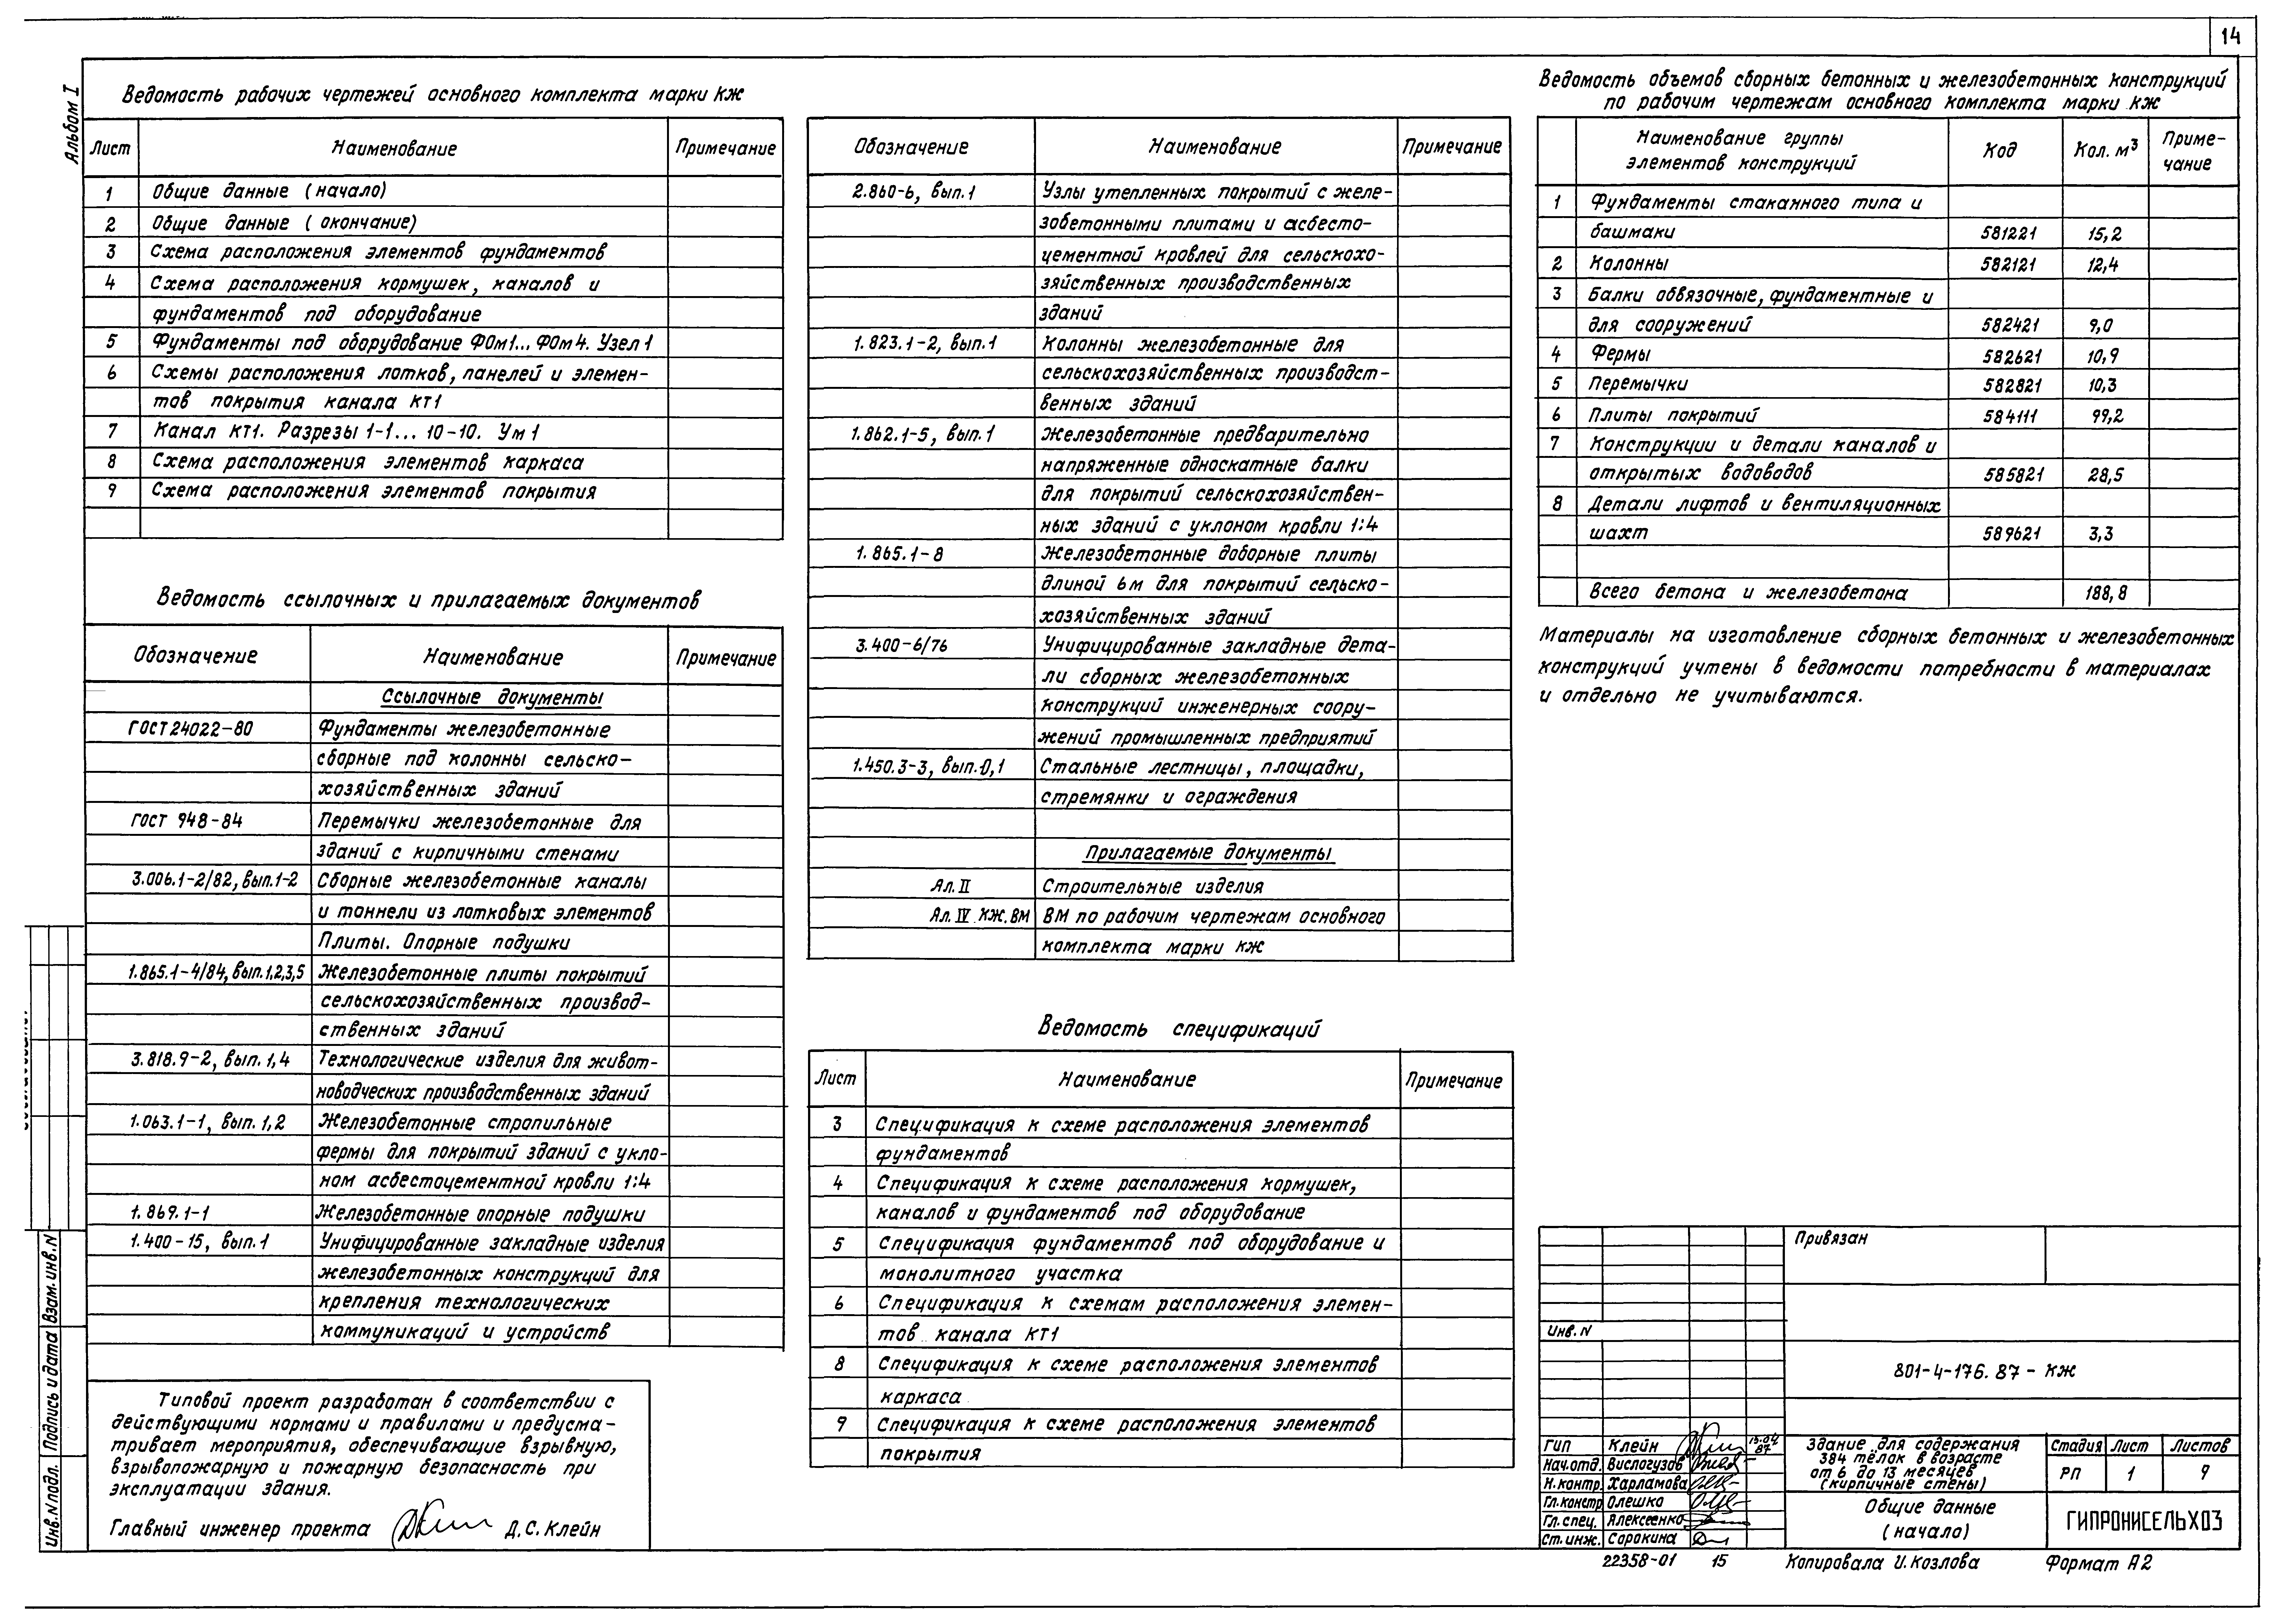 14
Альбом I
Ведомость рабочих чертежей основного комплекта марки КЖ
Лист Наименование Примечание
1 Общие данные (начало)
2 Общие данные (окончание)
3 Схема расположения элементов фундаментов
4 Схема расположения кормушек, каналов и
фундаментов под оборудование
5 Фундаменты под оборудование ФОм1... ФОм4. Узел 1
6 Схемы расположения лотков, панелей и элемен-
тов покрытия канала КТ1
7 Канал КТ1. Разрезы 1-1... 10-10. Ум 1
8 Схема расположения элементов каркаса
9 Схема расположения элементов покрытия
Ведомость ссылочных и прилагаемых документов
Обозначение Наименование Примечание
Ссылочные документы
ГОСТ 24022-80 Фундаменты железобетонные
сборные под колонны сельско-
хозяйственных зданий
ГОСТ 948-84 Перемычки железобетонные для
зданий с кирпичными стенами
3.006.1-2/82, вып.1-2 Сборные железобетонные каналы
и тоннели из лотковых элементов
Плиты. Опорные подушки
1.865.1-4/84, вып.1,2,3,5 Железобетонные плиты покрытий
сельскохозяйственных производ-
ственных зданий
3.818.9-2, вып. 1,4 Технологические изделия для живот-
новодческих производственных зданий
1.063.1-1, вып. 1,2 Железобетонные стропильные
фермы для покрытий зданий с укло-
ном асбестоцементной кровли 1:4
1.869.1-1 Железобетонные опорные подушки
1.400-15, вып.1 Унифицированные закладные изделия
железобетонных конструкций для
крепления технологических
коммуникаций и устройств
Типовой проект разработан в соответствии с
действующими нормами и правилами и предусма-
тривает мероприятия, обеспечивающие взрывную,
взрывопожарную и пожарную безопасность при
эксплуатации здания.
Главный инженер проекта Д.С. Клейн
Взам. инв. N
Подпись и дата
Инв. N подл.
Обозначение Наименование Примечание
2.860-6, вып.1 Узлы утепленных покрытий с желе-
зобетонными плитами и асбесто-
цементной кровлей для сельскохо-
зяйственных производственных
зданий
1.823.1-2, вып.1 Колонны железобетонные для
сельскохозяйственных производст-
венных зданий
1.862.1-5, вып.1 Железобетонные предварительно
напряженные односкатные балки
для покрытий сельскохозяйствен-
ных зданий с уклоном кровли 1:4
1.865.1-8 Железобетонные доборные плиты
длиной 6м для покрытий сельско-
хозяйственных зданий
3.400-6/76 Унифицированные закладные дета-
ли сборных железобетонных
конструкций инженерных соору-
жений промышленных предприятий
1.450.3-3, вып.0,1 Стальные лестницы, площадки,
стремянки и ограждения
Прилагаемые документы
Ал. II Строительные изделия
Ал. IV КЖ.ВМ ВМ по рабочим чертежам основного
комплекта марки КЖ
Ведомость спецификаций
Лист Наименование Примечание
3 Спецификация к схеме расположения элементов
фундаментов
4 Спецификация к схеме расположения кормушек,
каналов и фундаментов под оборудование
5 Спецификация фундаментов под оборудование и
монолитного участка
6 Спецификация к схемам расположения элемен-
тов канала КТ1
8 Спецификация к схеме расположения элементов
каркаса
9 Спецификация к схеме расположения элементов
покрытия
Ведомость объемов сборных бетонных и железобетонных конструкций
по рабочим чертежам основного комплекта марки КЖ
Наименование группы элементов конструкций Код Кол. м³ Приме-
чание
1 Фундаменты стаканного типа и
башмаки 581221 15,2
2 Колонны 582121 12,4
3 Балки обвязочные, фундаментные и
для сооружений 582421 9,0
4 Фермы 582621 10,9
5 Перемычки 582821 10,3
6 Плиты покрытий 584111 99,2
7 Конструкции и детали каналов и
открытых водоводов 585821 28,5
8 Детали лифтов и вентиляционных
шахт 589621 3,3
Всего бетона и железобетона 188,8
Материалы на изготовление сборных бетонных и железобетонных
конструкций учтены в ведомости потребности в материалах
и отдельно не учитываются.
Привязан
Инв. N
801-4-176.87 - КЖ
ГИП Клейн
Нач.отд. Вислогузов
Н.контр. Харламова
Гл.констр Олешко
Гл.спец. Алексеенко
Ст.инж. Сорокина
Здание для содержания
384 телок в возрасте
от 6 до 13 месяцев
(кирпичные стены)
Стадия Лист Листов
РП 1 9
Общие данные
(начало)
ГИПРОНИСЕЛЬХОЗ
22358-01 15 Копировала И. Козлова Формат А2